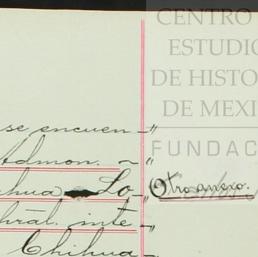 CENTRO
ESTUDIO
DE HISTO
DE MEXI
FUNDAC
se encuen-"
Admon. ~"
hua Lo
Otro anexo.
hrál. inte
Chihua-